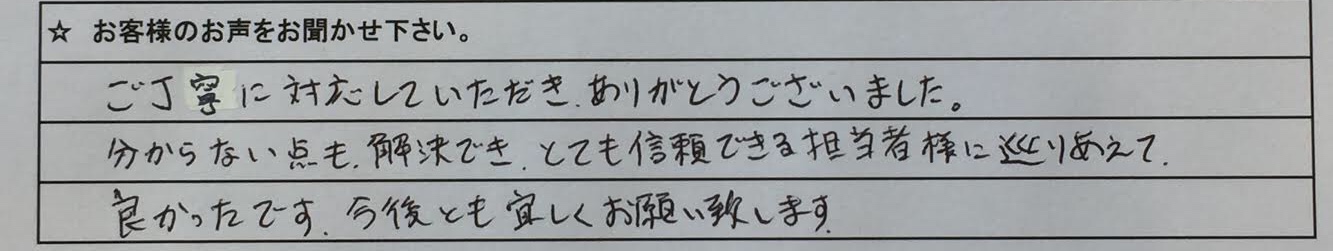 ☆ お客様のお声をお聞かせ下さい。
ご丁寧に対応していただき、ありがとうございました。
分からない点も、解決でき、とても信頼できる担当者様に巡りあえて、
良かったです。今後とも宜しくお願い致します。